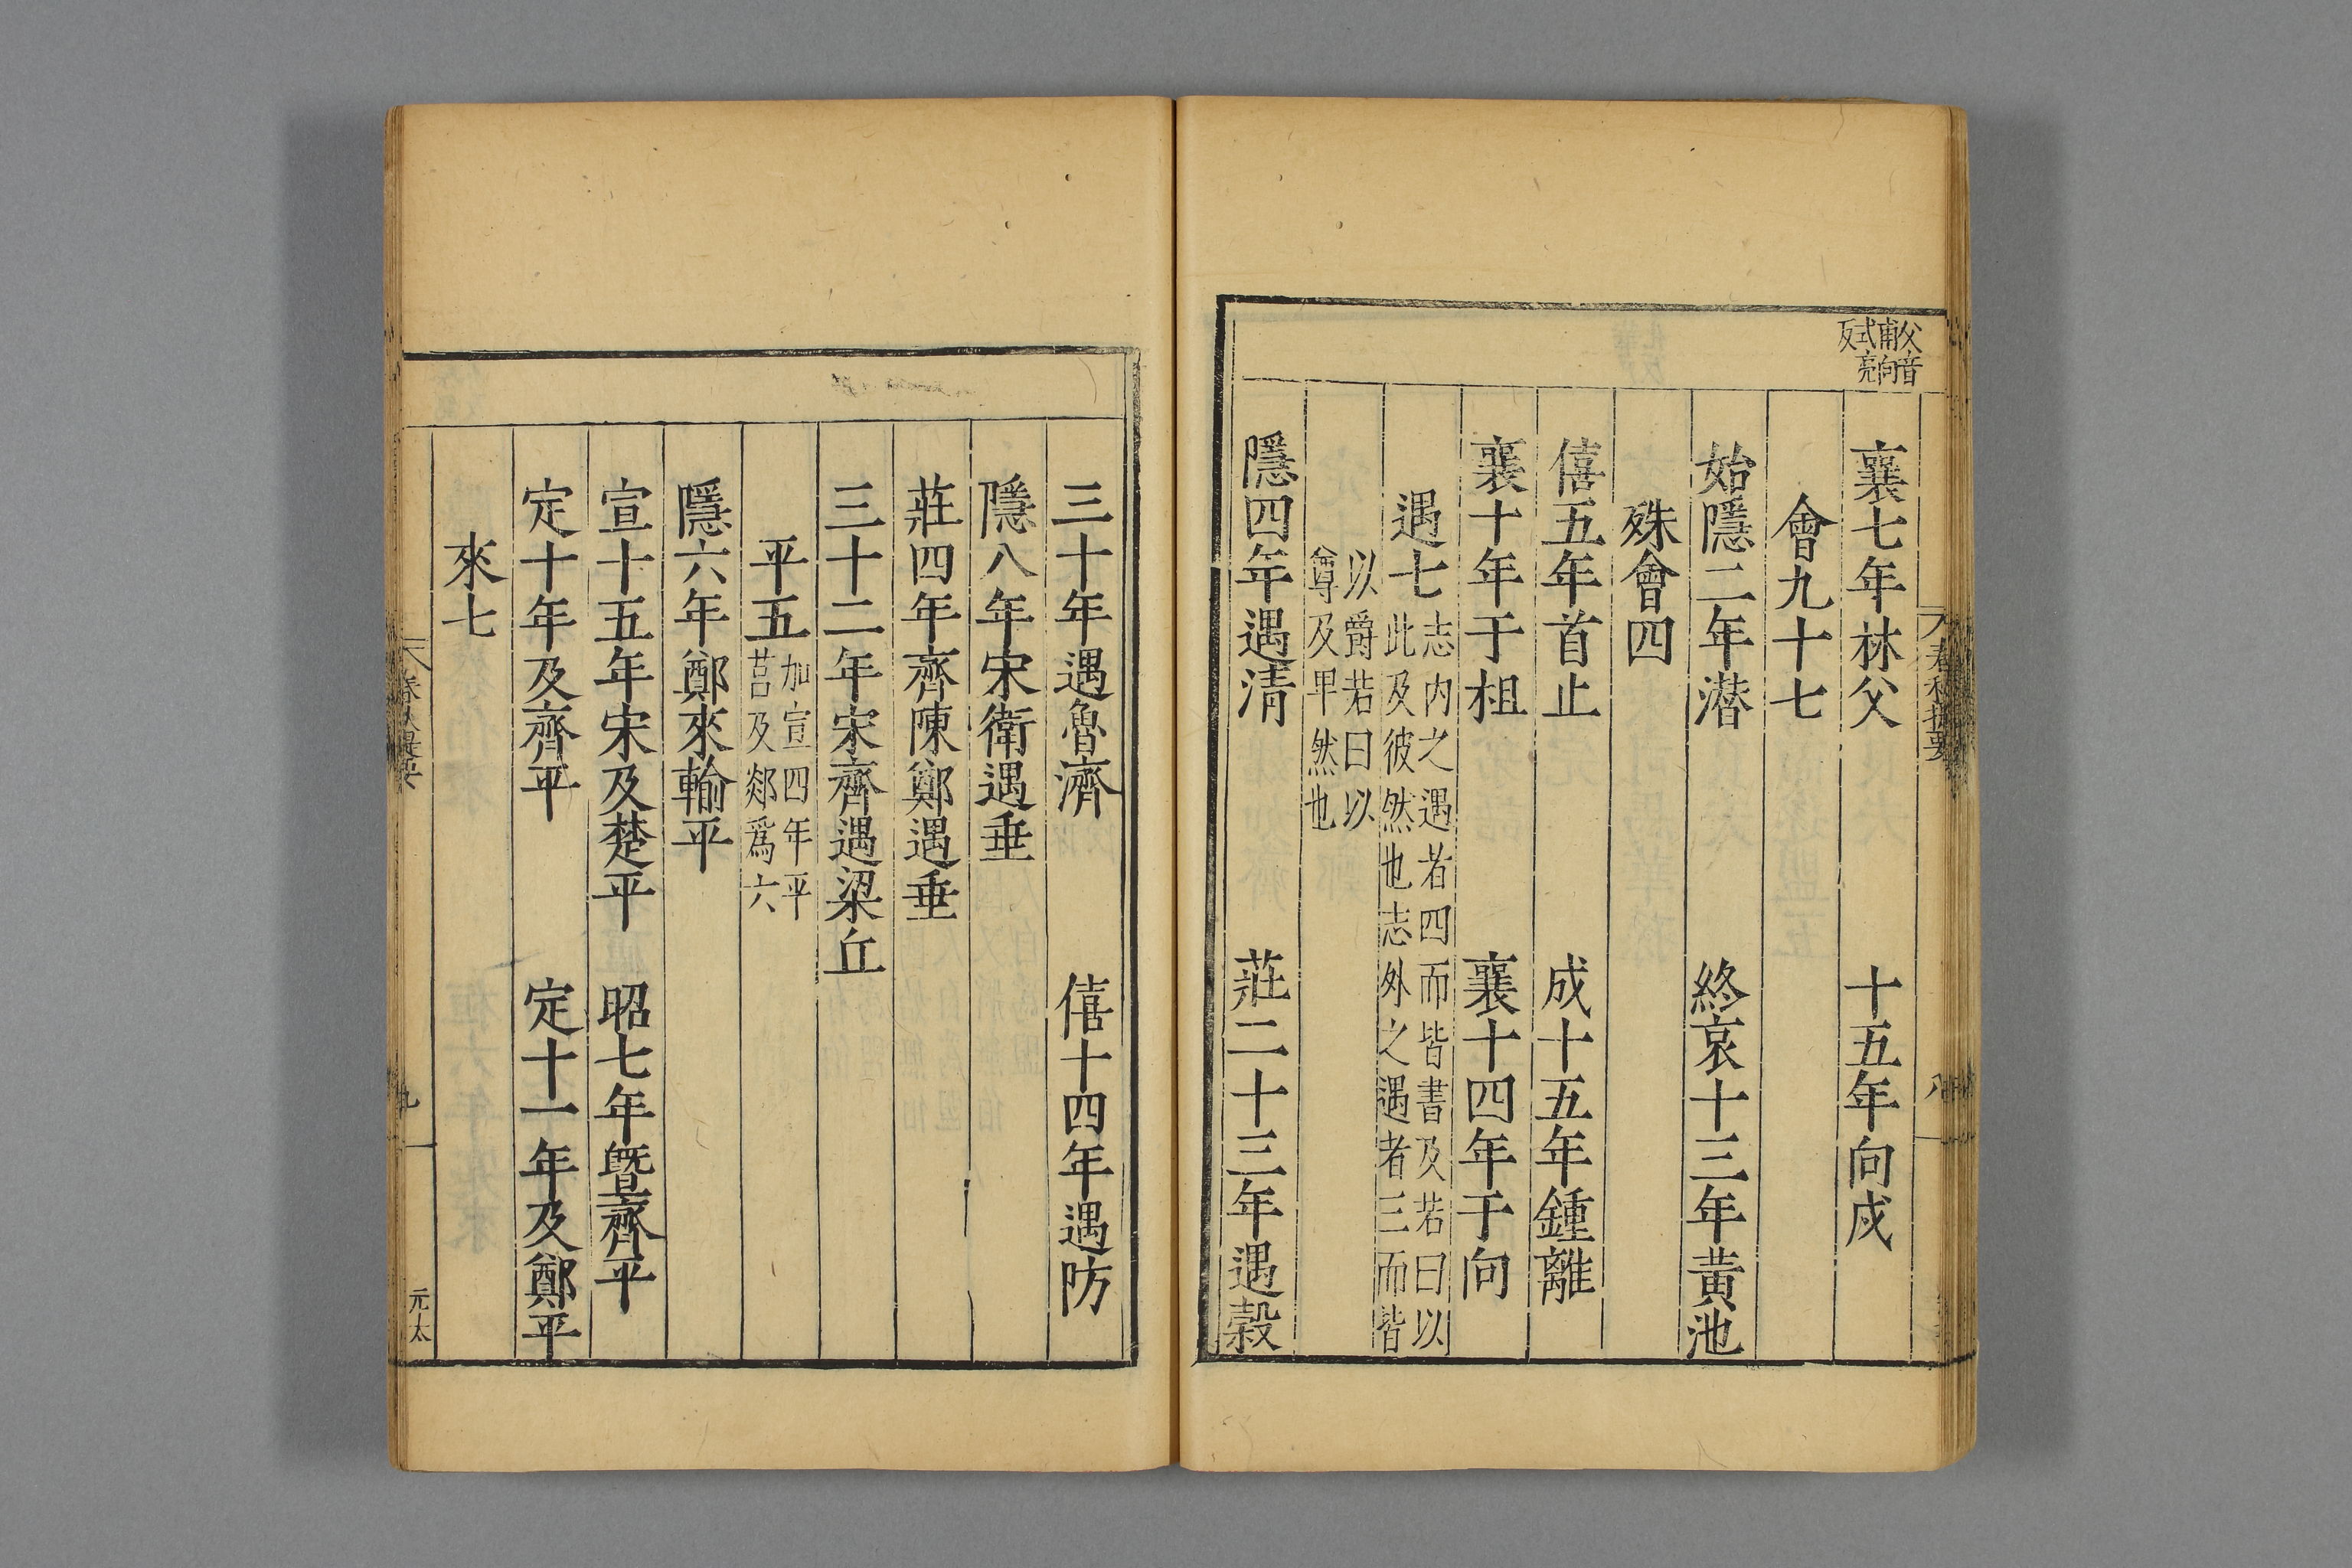 父音
甫向
式亮
反
襄七年林父　十五年向戍
會九十七
始隱二年潛　終哀十三年黃池
殊會四
僖五年首止　成十五年鍾離
襄十年于柤　襄十四年于向
遇七
志内之遇者四而皆書及若曰以
此及彼然也志外之遇者三而皆
以爵若曰以
尊及卑然也
隱四年遇清　莊二十三年遇穀
春秋提要
八
三十年遇魯濟　僖十四年遇防
隱八年宋衛遇垂
莊四年齊陳鄭遇垂
三十二年宋齊遇梁丘
平五
加宣四年平
莒及郯爲六
隱六年鄭來輸平
宣十五年宋及楚平　昭七年暨齊平
定十年及齊平　定十一年及鄭平
來七
春秋提要
九
元太